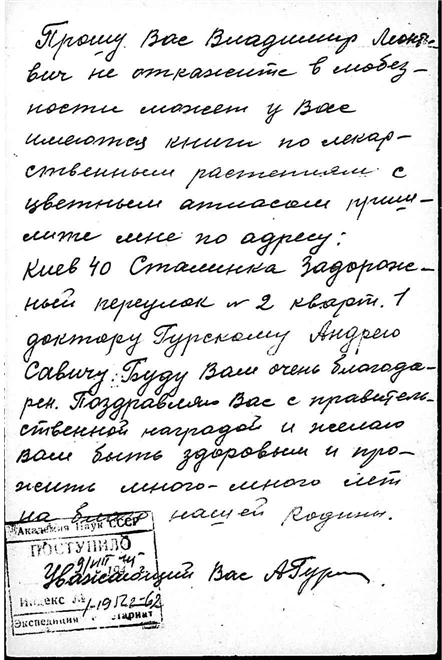 Прошу Вас Владимир Леонть-
евич не откажите в любез-
ности может у Вас
имеются книги по лекар-
ственным растениям с
цветным атласом приш-
лите мне по адресу:
Киев 40 Сталинка Задорож-
ный переулок № 2 кварт. 1
доктору Гурскому Андрею
Савичу. Буду Вам очень благода-
рен. Поздравляю Вас с правитель-
ственной наградой и желаю
Вам быть здоровым и про-
жить много-много лет
на благо нашей Родины.
Уважающий Вас АГурс
Академия Наук СССР
ПОСТУПИЛО
Индекс №
Экспедиция